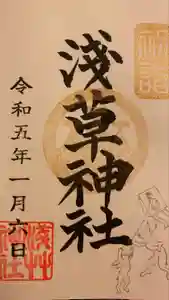 初詣
淺草神社
令和五年一月六日
淺草
神社